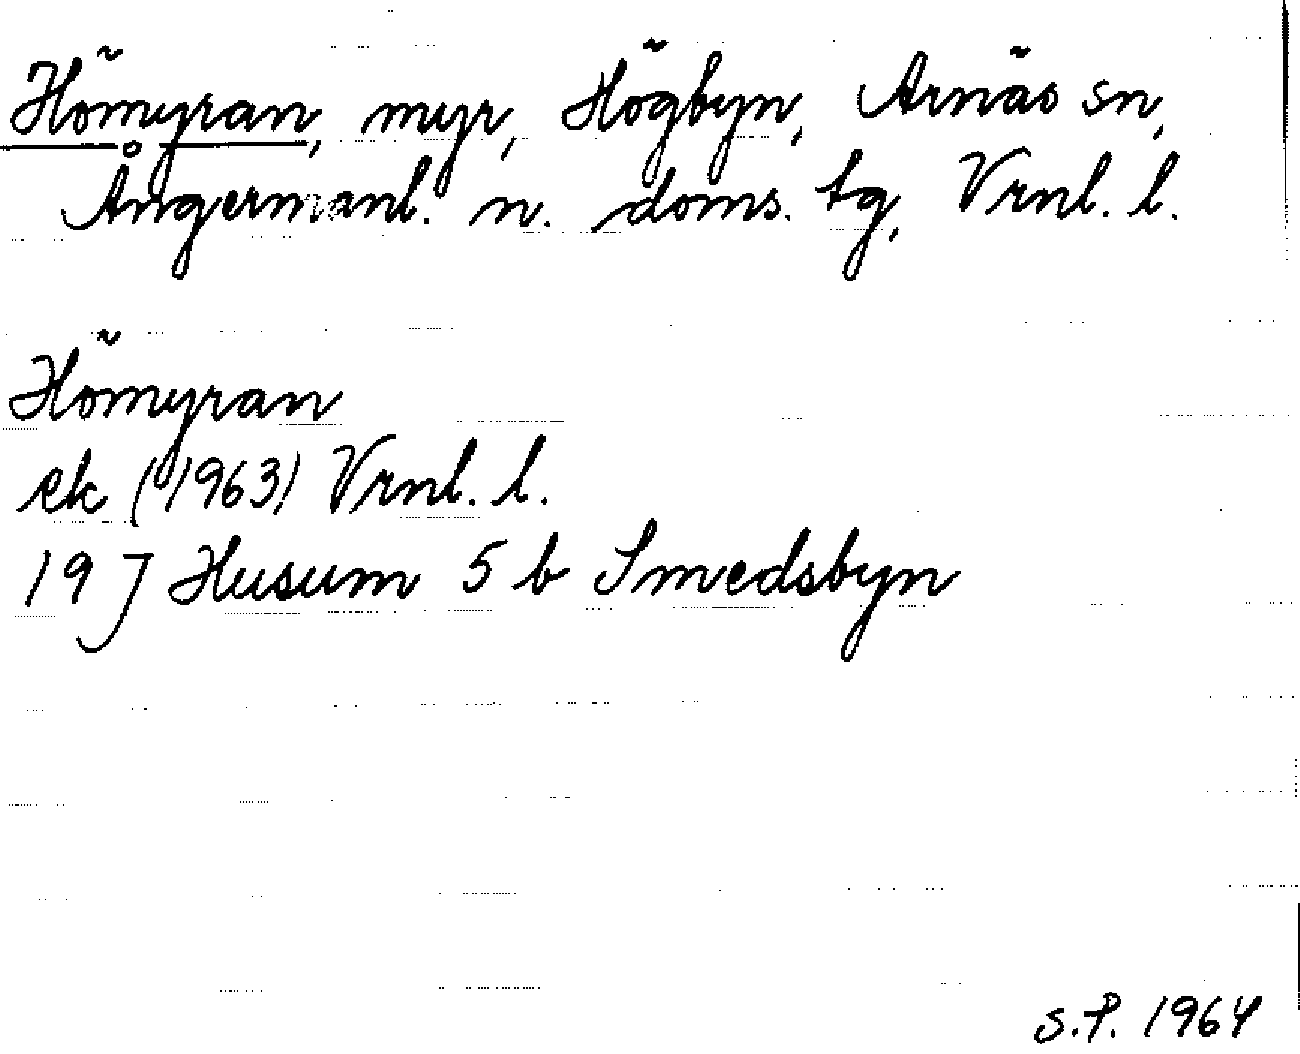 Hömyran, myr, Högbyn, Arnäs sn,
Ångermanl. n. doms. tg, Vrnl. l.
Hömyran
ek (1963) Vrnl. l.
19 J Husum 5 b Smedsbyn
S.P. 1964